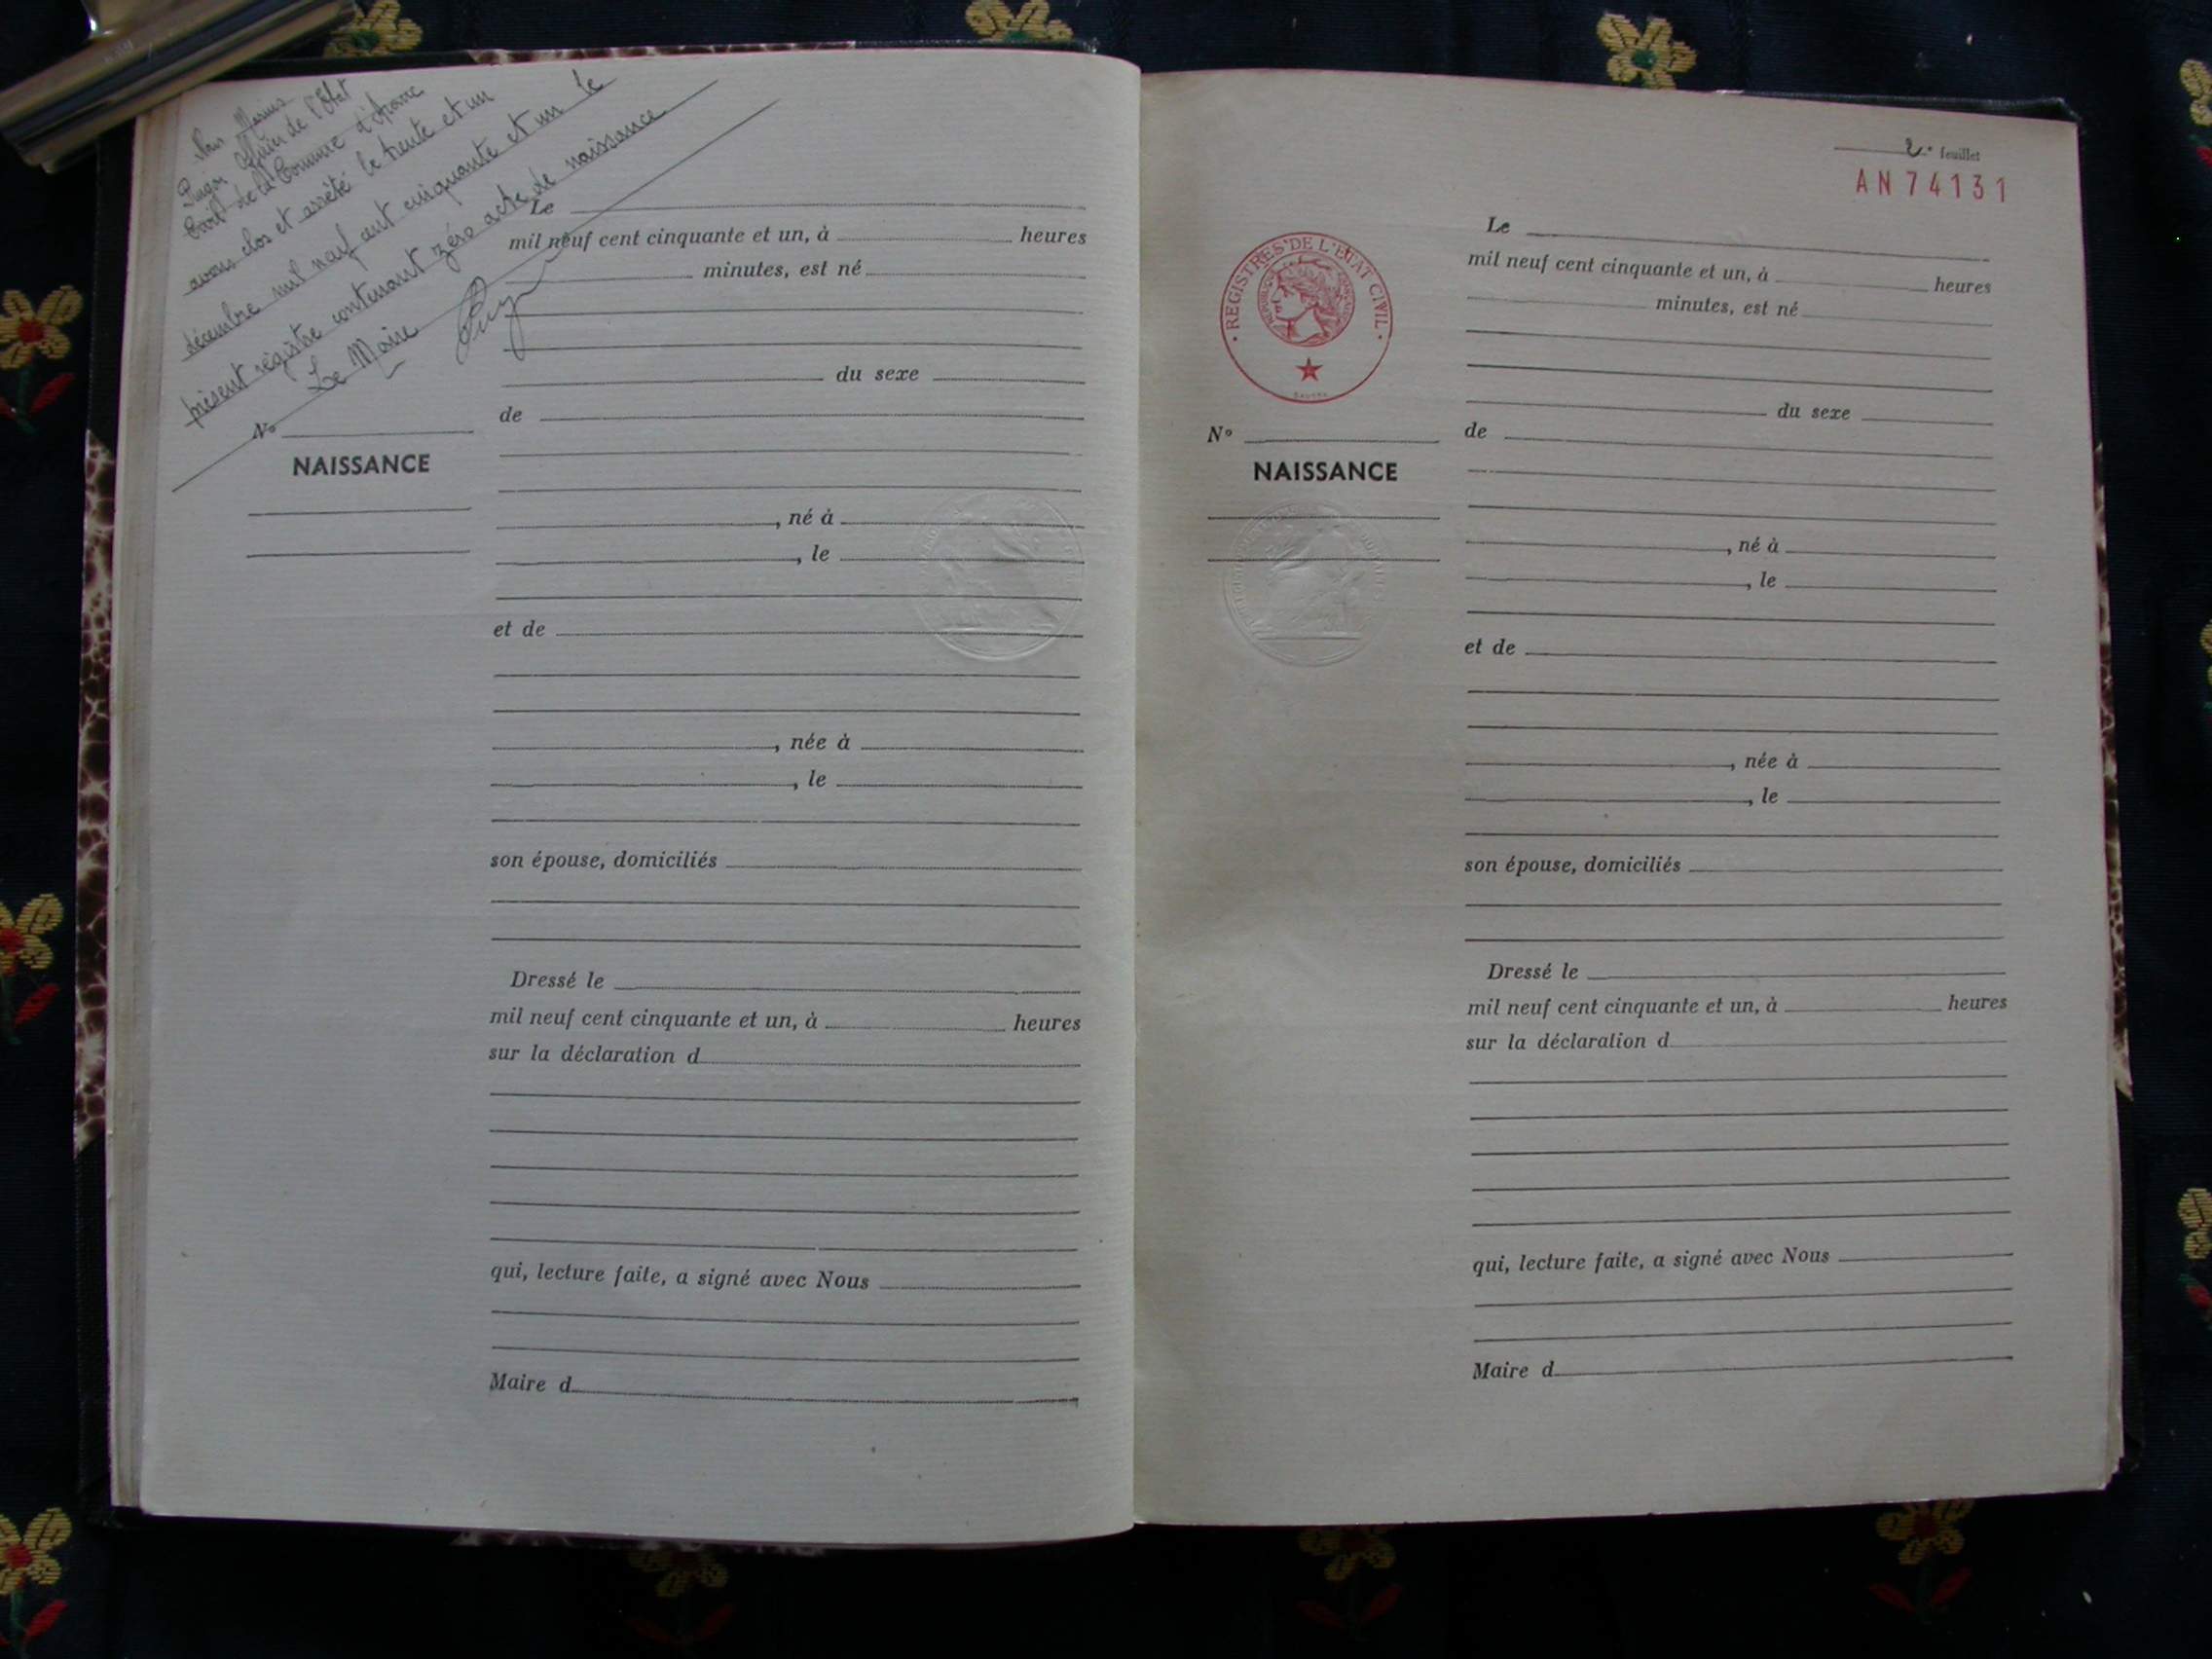 Nous Marius
Officier de l'Etat
Civil de la Commune d'
avons clos et arrêté le trente et un
décembre mil neuf cent cinquante et un le
présent registre contenant zéro acte de naissance
Le Maire
N°
NAISSANCE
Le
mil neuf cent cinquante et un, à heures
minutes, est né
du sexe
de
, né à
, le
et de
, née à
, le
son épouse, domiciliés
Dressé le
mil neuf cent cinquante et un, à heures
sur la déclaration d
qui, lecture faite, a signé avec Nous
Maire d
2e feuillet
AN74131
REGISTRES DE L'ETAT CIVIL
N°
NAISSANCE
Le
mil neuf cent cinquante et un, à heures
minutes, est né
du sexe
de
, né à
, le
et de
, née à
, le
son épouse, domiciliés
Dressé le
mil neuf cent cinquante et un, à heures
sur la déclaration d
qui, lecture faite, a signé avec Nous
Maire d